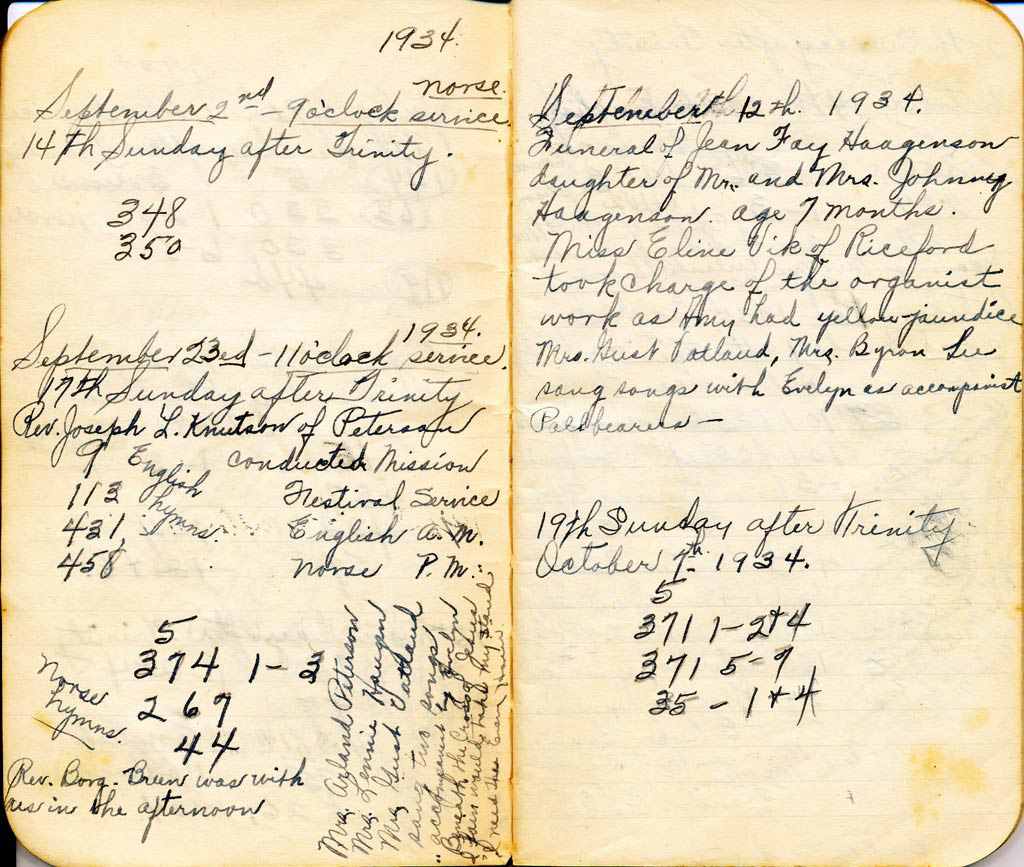 1934.
Norse.
September 2nd - 9 o'clock service
14th Sunday after Trinity.
348
350
1934.
September 23ed - 11 o'clock service.
17th Sunday after Trinity
Rev. Joseph L. Knutson of Peterson
9 English conducted Mission
113 hymns Festival Service
431, English A.M.
458 Norse P.M.
5
374 1-3
Norse
hymns.
269
44
Rev. Borg. Breen was with
us in the afternoon
Mrs. Arland Peterson
Mrs. Lennie Haugen
Mrs. Gust Tatland
sang two songs
accompanist by Evelyn
"Beneath the Cross of Jesus
I fain would take my stand
"I need Thee Every
September 12th. 1934.
Funeral of Jean Fay Haagenson
daughter of Mr. and Mrs. Johnny
Haagenson. age 7 months.
Miss Eline Vik of Riceford
took charge of the organist
work as Amy had yellow-jaundice
Mrs. Gust Tatland, Mrs. Byron Lee
sang songs with Evelyn as accompanist
Pallbearers -
19th Sunday after Trinity
October 7th. 1934.
5
371 1-2+4
371 5-9
35 - 1+4